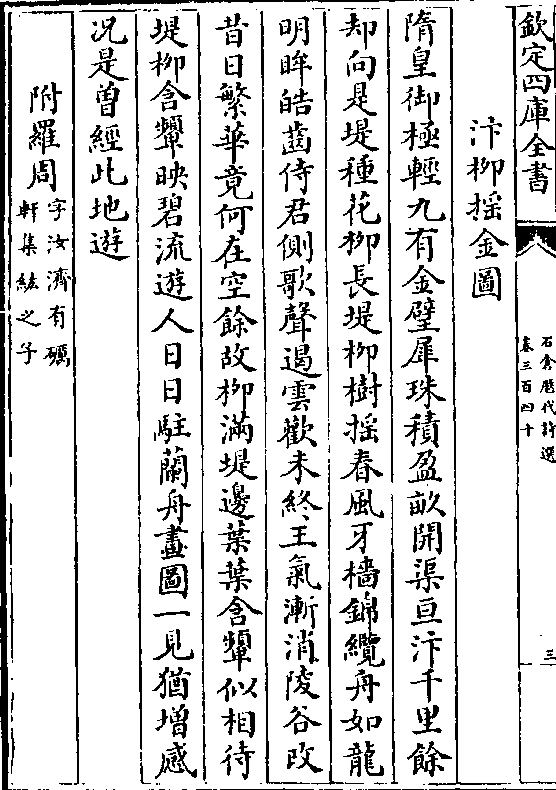 欽定四庫全書
石倉歷代詩選
卷三百四十
三
汴柳揺金圖
隋皇御極輕九有金璧犀珠積盈畝開渠亘汴千里餘
却向是堤種花柳長堤柳樹揺春風牙檣錦纜舟如龍
明眸皓齒侍君側歌聲遏雲歡未終王氣漸消陵谷改
昔日繁華竟何在空餘故柳滿堤邊葉葉含顰似相待
堤柳含顰映碧流遊人日日駐蘭舟畫圖一見猶增感
况是曽經此地遊
附羅周
字汝濟有礪
軒集紘之子